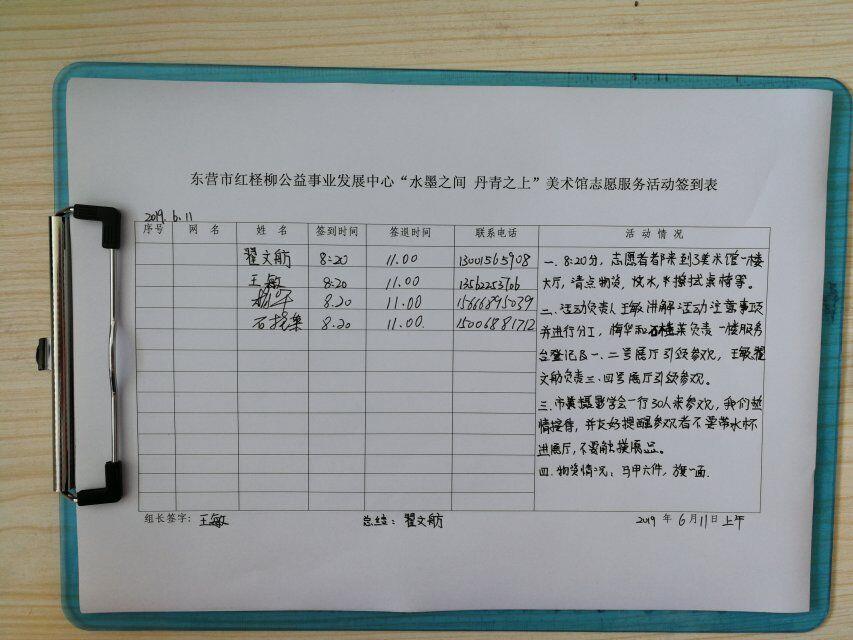 东营市红柽柳公益事业发展中心“水墨之间 丹青之上”美术馆志愿服务活动签到表
2019.6.11
序号 网名 姓名 签到时间 签退时间 联系电话 活动情况
翟文舫 8:20 11.00 13001565908
王敏 8:20 11.00 13562253706
8.20 11.00 15666895039
石 8.20 11.00. 15006881712
一.8:20分，志愿者都来到美术馆一楼
大厅，清点物资，放水，擦拭桌椅等。
二.活动负责人王敏讲解活动注意事项
并进行分工，梅华和石桂英负责一楼服务
台登记及一、二号展厅引领参观，王敏翟
文舫负责三.四号展厅引领参观。
三.市摄影学会一行30人来参观，我们热
情接待，并友好提醒参观者不要带水杯
进展厅，不要触摸展品。
四.物资情况：马甲六件，旗一面.
组长签字：王敏 总结：翟文舫 2019年6月11日上午